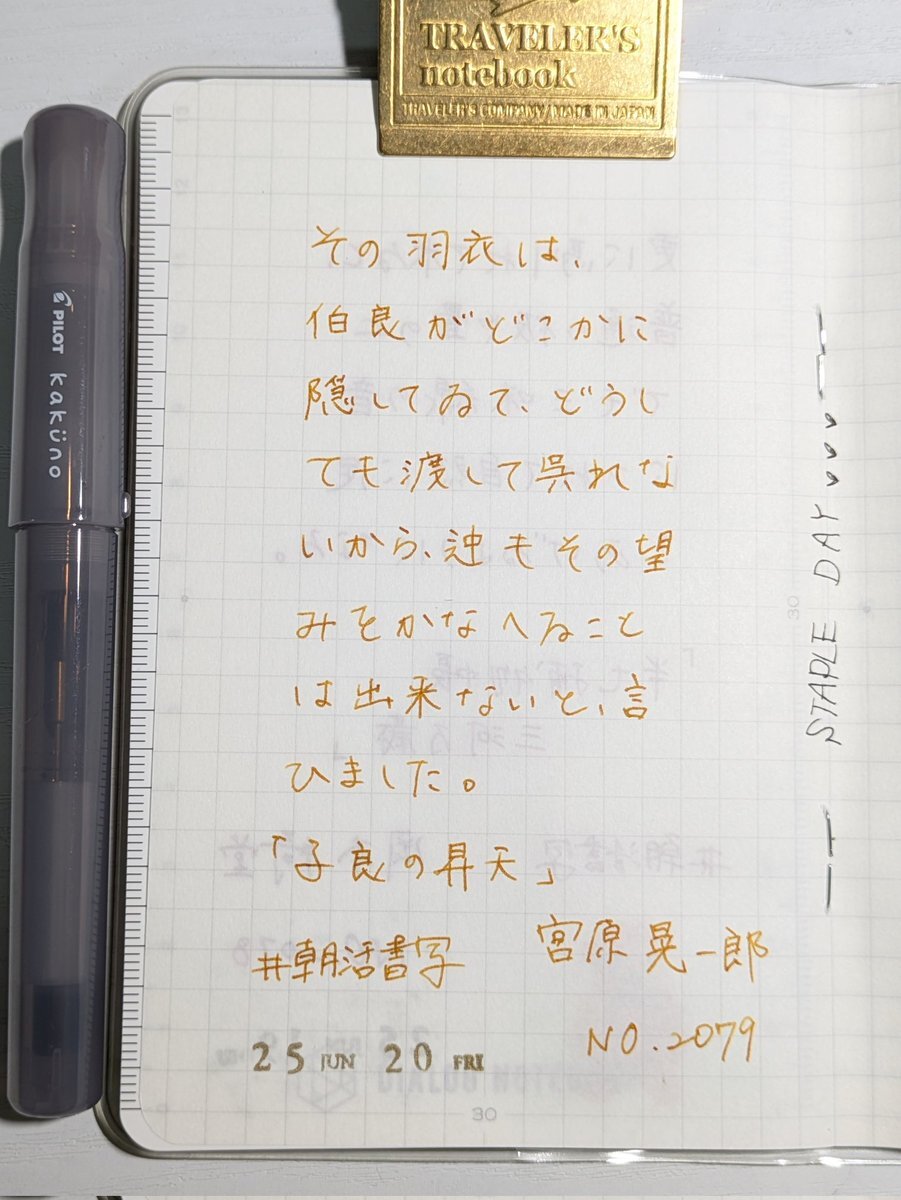 TRAVELER'S
notebook
TRAVELER'S COMPANY/MADE IN JAPAN
PILOT kaküno
その羽衣は、
伯良がどこかに
隠してゐて、どうし
ても渡して呉れな
いから、迚もその望
みをかなへること
は出来ないと、言
ひました。
「子良の昇天」
#朝活書写 宮原晃一郎
NO.2079
25 JUN 20 FRI
30
STAPLE DAY